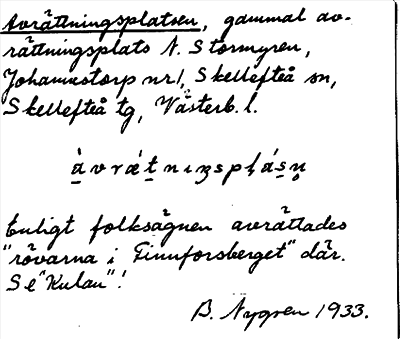 Avrättningsplatsen, gammal av-
rättningsplats N. Stormyren,
Johannstorp nr1, Skellefteå sn,
Skellefteå tg, Västerb. l.
àvrætnıŋspláṣn̥
Enligt folksägnen avrättades
"rövarna i Finnforsberget" där.
Se "Kulan"!
B. Nygren 1933.